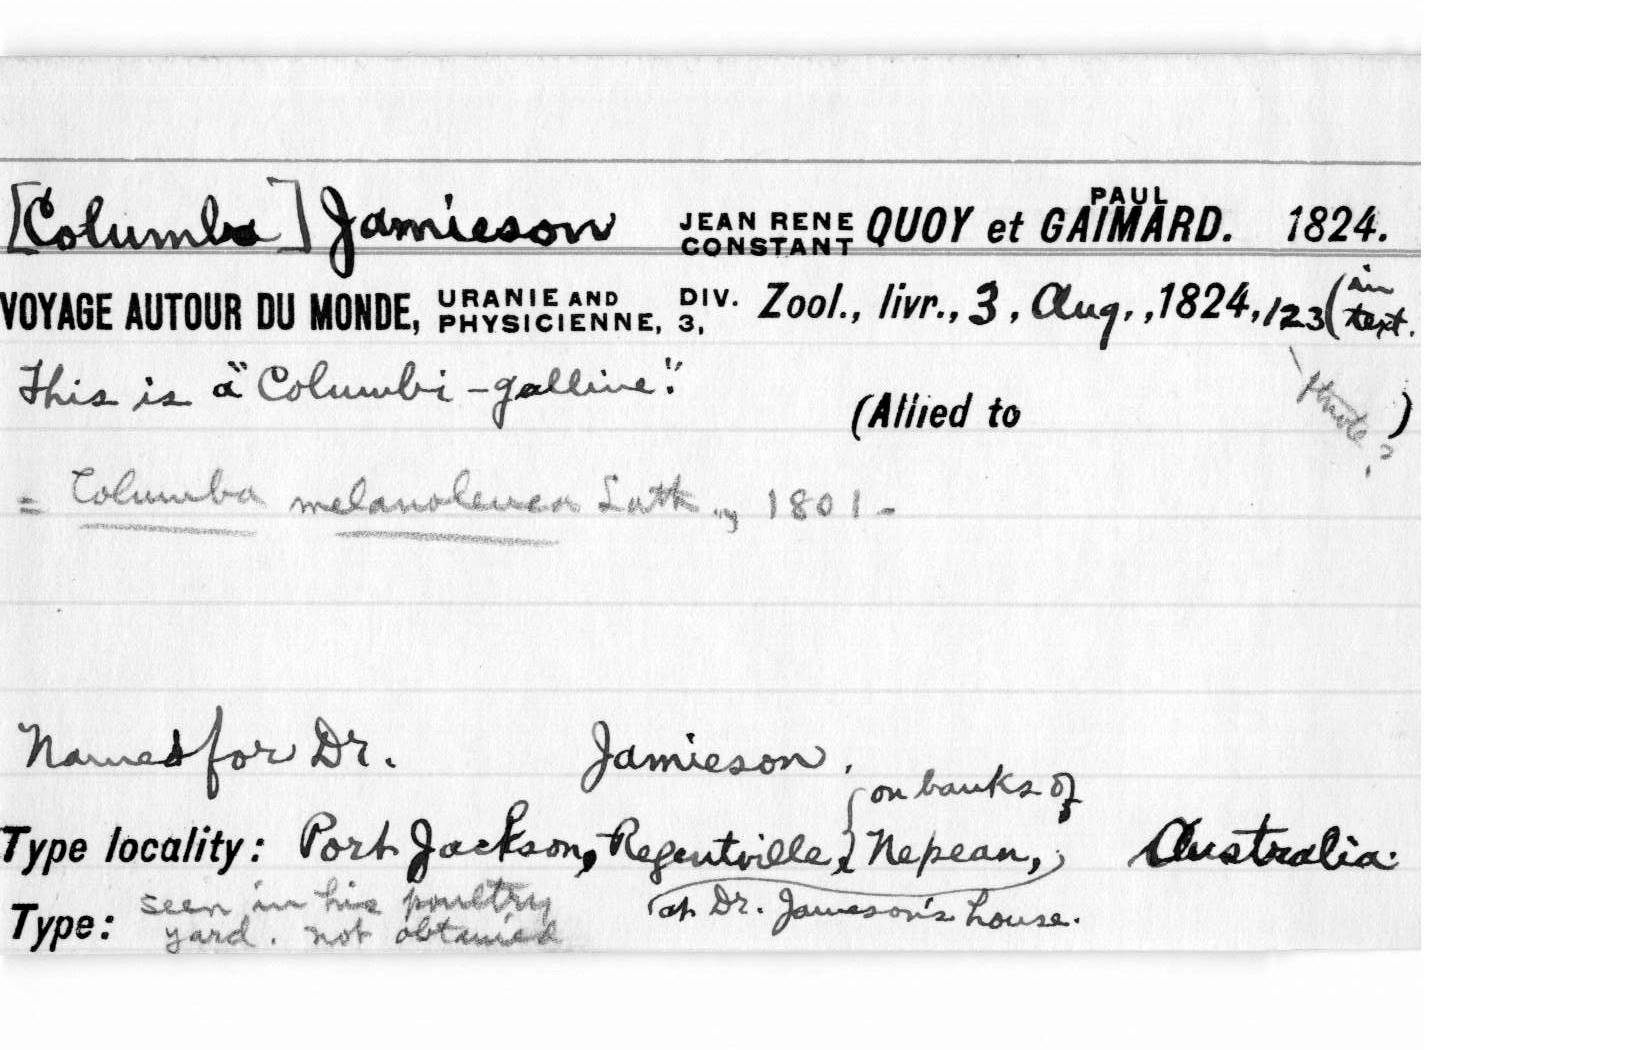 [Columba] Jamieson JEAN RENE CONSTANT QUOY et PAUL GAIMARD. 1824.
VOYAGE AUTOUR DU MONDE, URANIE AND PHYSICIENNE, DIV. 3, Zool., livr., 3, Aug., 1824, 123 (in text.
This is a "Columbi-galline".
(Allied to )
= Columba melanoleuca Lath., 1801-
Named for Dr. Jamieson.
on banks of
Type locality: Port Jackson, Regentville, Nepean, Australia.
at Dr. Jameson's house.
Type: seen in his poultry
yard. not obtained